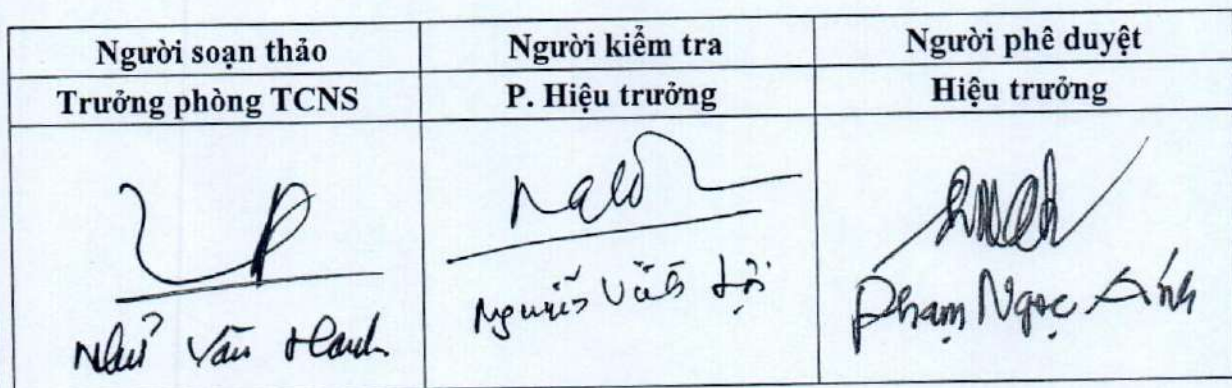 Người soạn thảo
Người kiểm tra
Người phê duyệt
Trưởng phòng TCNS
P. Hiệu trưởng
Hiệu trưởng
Văn
Nguyễn Văn Lợi
Phạm Ngọc Ánh